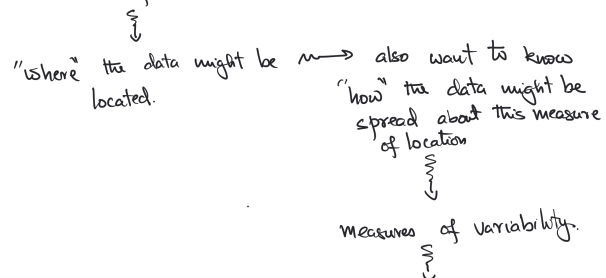 "where" the data might be
located.
also want to know
"how" the data might be
spread about this measure
of location
measures of variability.